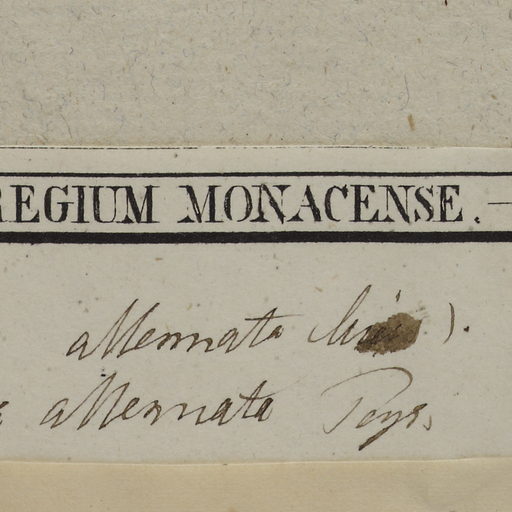 REGIUM MONACENSE. —
alternata ).
alternata Pers.